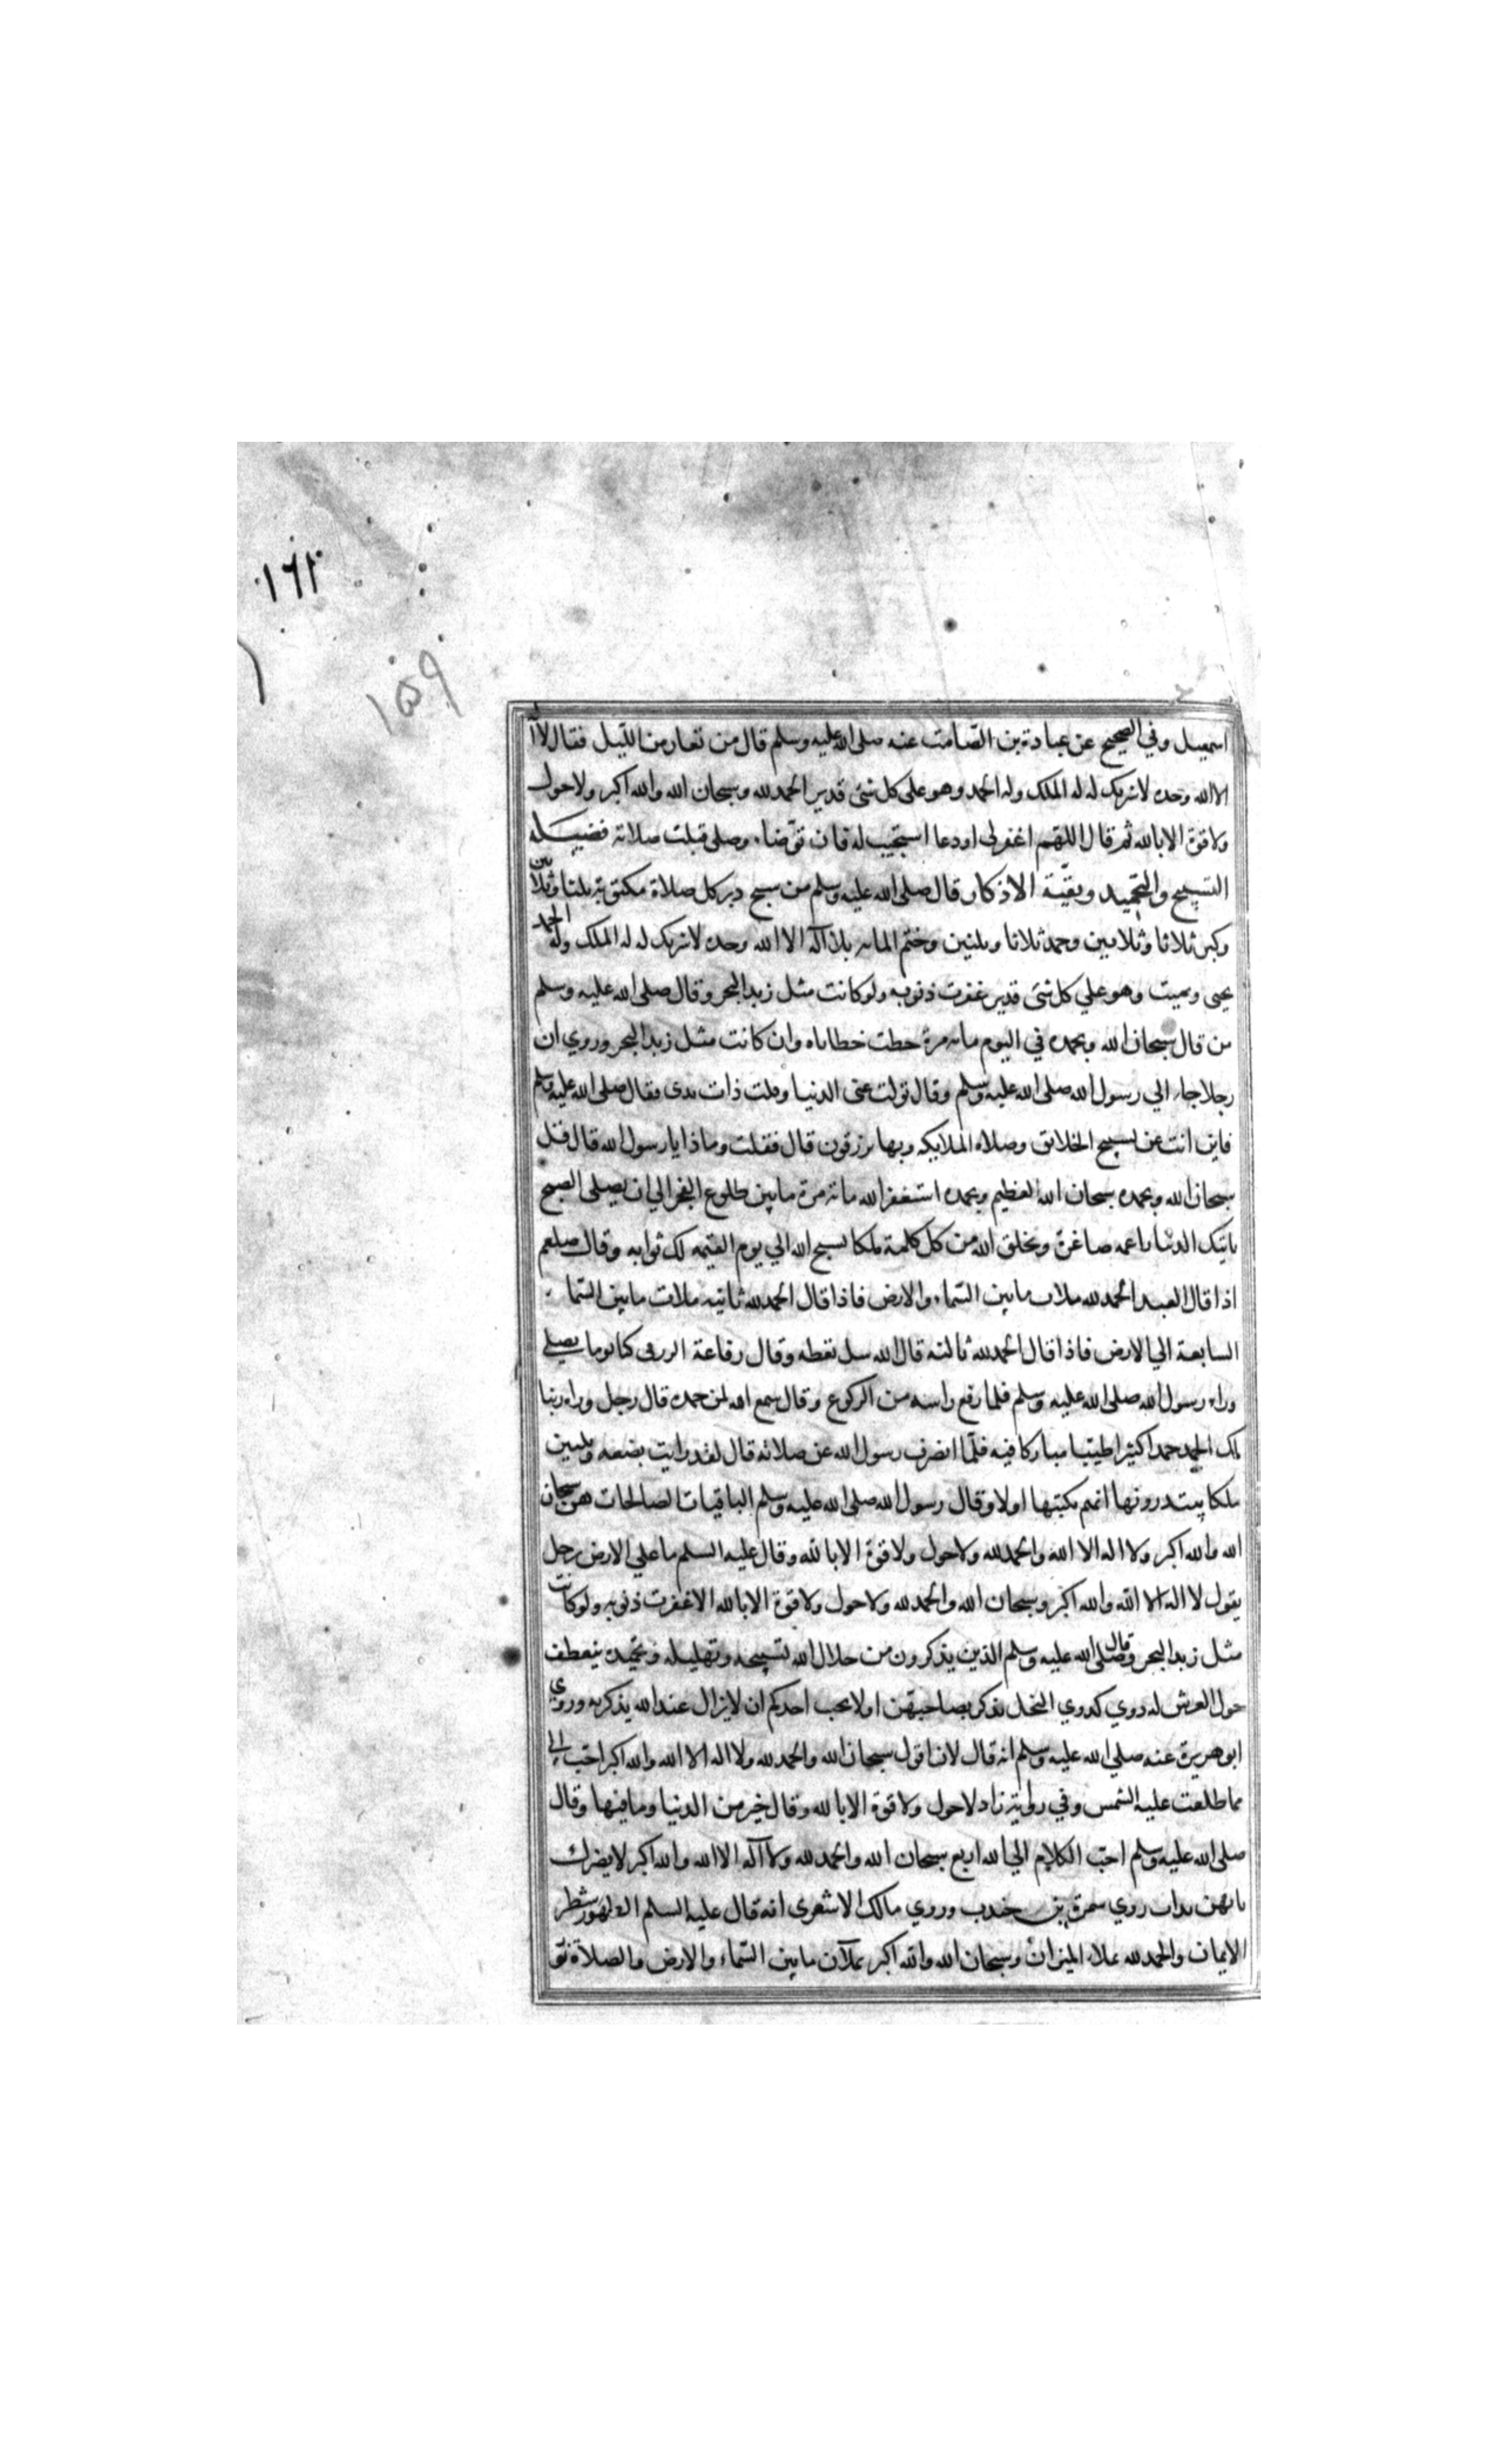 ١٦٢
١٥٩
اسمعيل وفي الصحيح عن عبادة بن الصامت عنه صلى الله عليه وسلم قال من تعار من الليل فقال لا اله
الا الله وحده لا شريك له له الملك وله الحمد وهو على كل شئ قدير الحمد لله وسبحان الله والله اكبر ولا حول
ولا قوة الا بالله ثم قال اللهم اغفر لي او دعا استجيب له فان توضاء وصلى قبلت صلاته فضيله
التسبيح والتحميد وبقية الاذكار قال صلى الله عليه وسلم من سبح دبر كل صلاة مكتوبة ثلثا وثلاثين
وكبر ثلاثا وثلاثين وحمد ثلاثا وثلثين وختم المائه بلا اله الا الله وحده لا شريك له له الملك وله الحمد
يحيى ويميت وهو علي كل شئ قدير غفرت ذنوبه ولو كانت مثل زبد البحر وقال صلى الله عليه وسلم
من قال سبحان الله وبحمده في اليوم مائه مرة حطت خطاياه وان كانت مثل زبد البحر وروي ان
رجلا جاء الي رسول الله صلى الله عليه وسلم وقال تولت عنى الدنيا وقلت ذات يدى فقال صلى الله عليه وسلم
فاين انت عن تسبيح الخلائق وصلاه الملايكه وبها يرزقون قال فقلت وماذا يا رسول الله قال قل
سبحان الله وبحمده سبحان الله العظيم وبحمده استغفر الله مائة مرة ما بين طلوع الفجر الي ان يصلى الصبح
ياتيك الدنيا راغمه صاغرة ويخلق الله من كل كلمة ملكا يسبح الله الي يوم القيمه لك ثوابه وقال صلعم
اذا قال العبد الحمد لله ملات ما بين السماء والارض فاذا قال الحمد لله ثانيه ملات ما بين السماء
السابعة الي الارض فاذا قال الحمد لله ثالثه قال الله سل تعطه وقال رفاعة الزرقى كنا يوما يصلي
وراء رسول الله صلى الله عليه وسلم فلما رفع راسه من الركوع وقال سمع الله لمن حمده قال رجل وراه ربنا
لك الحمد حمدا كثيرا طيبا مباركا فيه فلما انصرف رسول الله عن صلاته قال لقد رايت بضعه وثلثين
ملكا يبتدرونها ايهم يكتبها اولا وقال رسول الله صلى الله عليه وسلم الباقيات الصالحات هن سبحان
الله والله اكبر ولا اله الا الله والحمد لله ولا حول ولا قوة الا بالله وقال عليه السلم ما علي الارض رجل
يقول لا اله الا الله والله اكبر وسبحان الله والحمد لله ولا حول ولا قوة الا بالله الا غفرت ذنوبه ولو كانت
مثل زبد البحر وقال صلى الله عليه وسلم الذين يذكرون من جلال الله تسبيحه وتهليله وتحميده ينعطف
حول العرش له دوي كدوي النحل يذكر بصاحبهن اولا يحب احدكم ان لا يزال عند الله يذكر به وروي
ابو هريرة عنه صلي الله عليه وسلم انه قال لان اقول سبحان الله والحمد لله ولا اله الا الله والله اكبر احب الي
مما طلعت عليه الشمس وفي رواية زاد لا حول ولا قوة الا بالله وقال خير من الدنيا وما فيها وقال
صلى الله عليه وسلم احب الكلام الي الله اربع سبحان الله والحمد لله ولا اله الا الله والله اكبر لا يضرك
بايهن بدات روي سمرة بن جندب وروي مالك الاشعرى انه قال عليه السلم الطهور شطر
الايمان والحمد لله يملاء الميزان وسبحان الله والله اكبر يملآن ما بين السماء والارض والصلاة نو